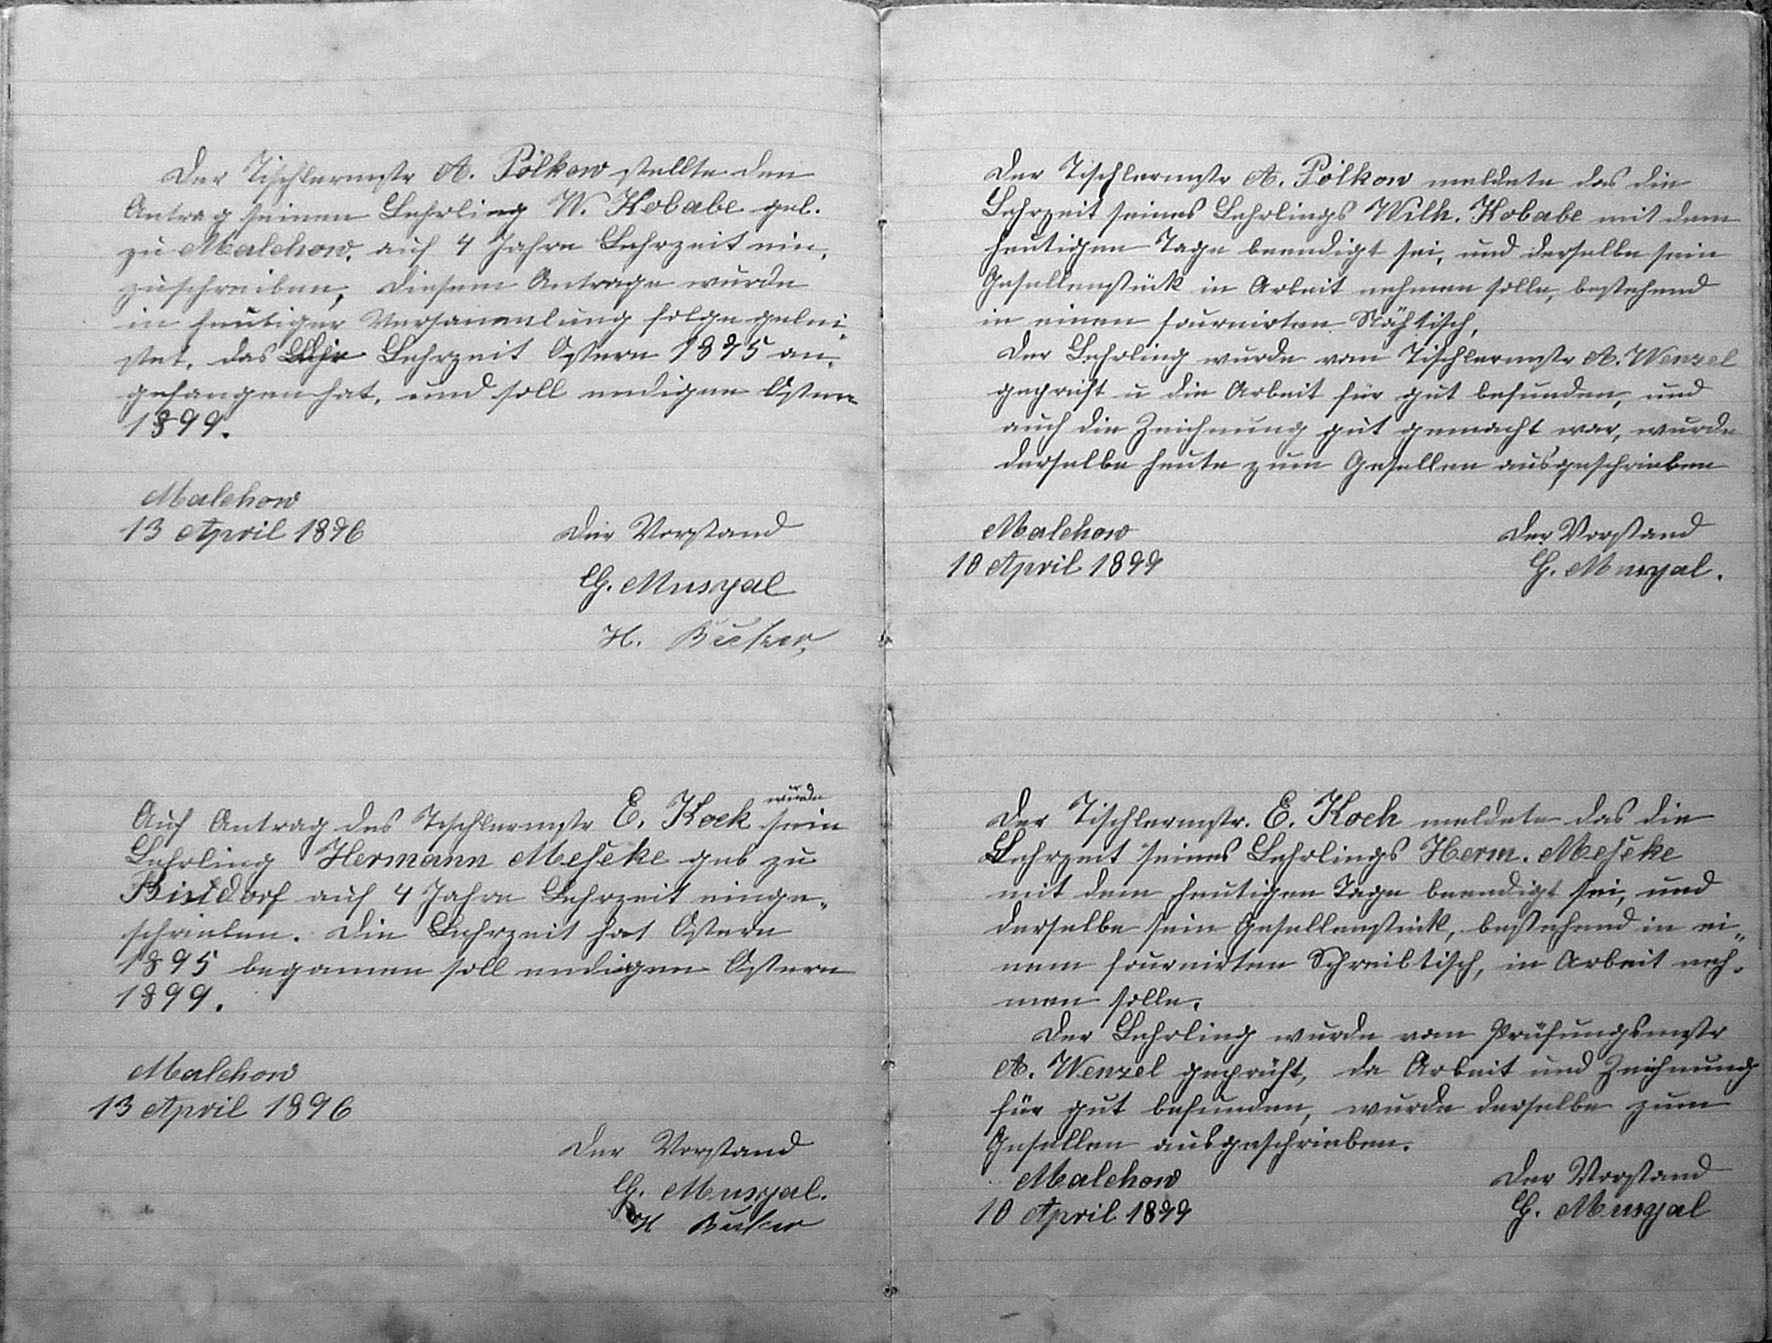 Der Tischlermstr A. Pölkow stellte den
Antrag seinen Lehrling W. Kobabe geb.
zu Malchow, auf 4 Jahre Lehrzeit ein,
zuschreiben, diesem Antrage wurde
in heutiger Versammlung folge gelei,
stet. das Lehrzeit Ostern 1895 an,
gefangen hat, und soll endigen Ostern
1899.
Malchow
13 April 1896
Der Vorstand
G.
H.
wurde
Auf Antrag des Tischlermstr E. Kock sein
Lehrling Hermann Meseke geb zu
auf 4 Jahre Lehrzeit einge,
schrieben. Die Lehrzeit hat Ostern
1895 begonnen soll endigen Ostern
1899.
Malchow
13 April 1896
Der Vorstand
G.
H
Der Tischlermstr A. Pölkow meldete das die
Lehrzeit seines Lehrlings Wilh. Kobabe mit dem
heutigen Tage beendigt sei, und derselbe sein
Gesellenstück in Arbeit nehmen solle, bestehend
in einen fournirten Nähtisch,
Der Lehrling wurde vom Tischlermstr A. Wenzel
geprüft u die Arbeit für gut befunden, und
auch die Zeichnung gut gemacht war, wurde
derselbe heute zum Gesellen ausgeschrieben
Malchow
10 April 1899
Der Vorstand
G.
Der Tischlermstr. E. Koch meldete das die
Lehrzeit seines Lehrlings Herm. Meseke
mit dem heutigen Tage beendigt sei, und
derselbe sein Gesellenstück, bestehend in ei„
nem fournirten Schreibtisch, in Arbeit neh„
men solle.
Der Lehrling wurde vom Prüfungsmstr
A. Wenzel geprüft, da Arbeit und Zeichnung
für gut befunden, wurde derselbe zum
Gesellen ausgeschrieben.
Malchow
10 April 1899
Der Vorstand
G.